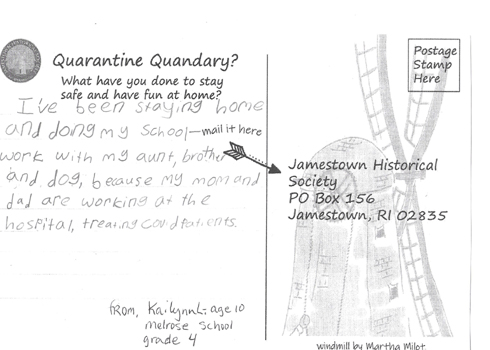 Quarantine Quandary?
What have you done to stay
safe and have fun at home?
I've been staying home
and doing my school—
work with my aunt, brother
and dog, because my mom and
dad are working at the
hospital, treating Covid patients.
from, Kailynn L. age 10
melrose school
grade 4
mail it here
Postage
Stamp
Here
Jamestown Historical
Society
PO Box 156
Jamestown, RI 02835
windmill by Martha Milot.